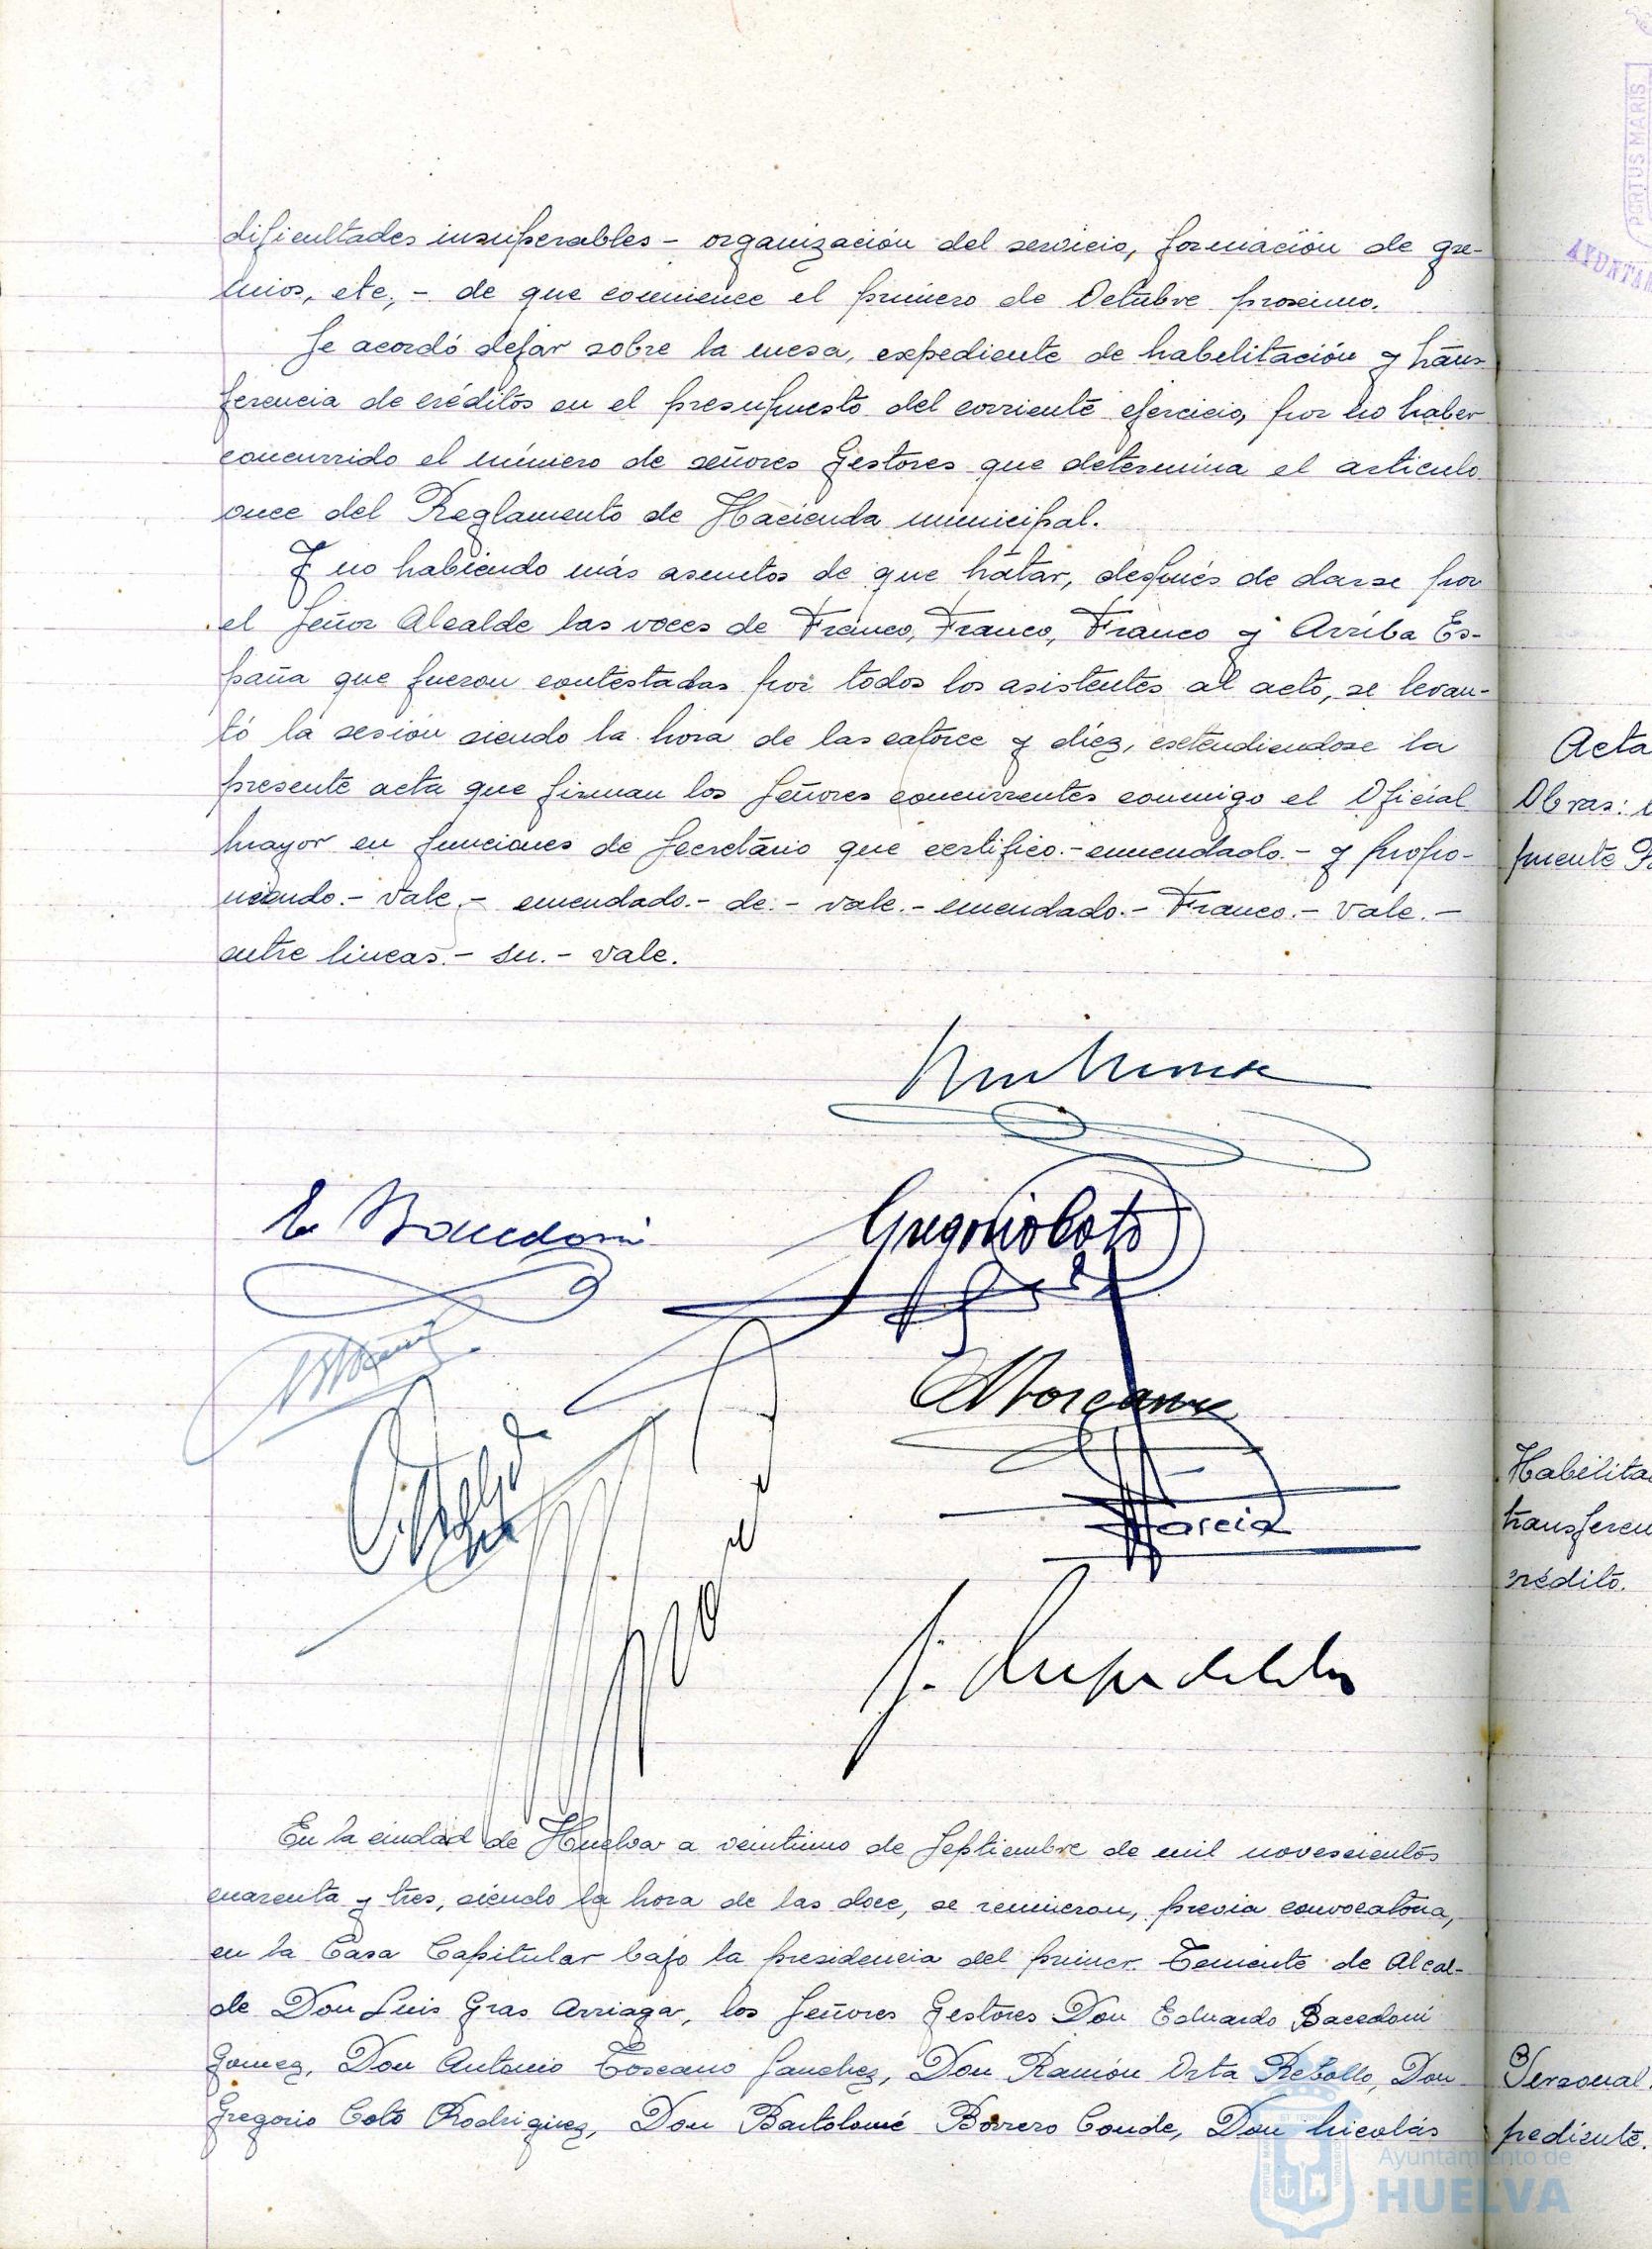 dificultades insuperables - organización del servicio, formación de gre-
mios, etc, - de que comience el primero de Octubre proximo.
Se acordó dejar sobre la mesa, expediente de habilitación y trans-
ferencia de créditos en el presupuesto del corriente ejercicio, por no haber
concurrido el número de señores Gestores que determina el articulo
once del Reglamento de Hacienda municipal.
Y no habiendo más asuntos de que tratar, después de darse por
el Señor Alcalde las voces de Franco, Franco, Franco y Arriba Es-
paña que fueron contestadas por todos los asistentes al acto, se levan-
tó la sesión siendo la hora de las catorce y diez, extendiendose la
presente acta que firman los Señores concurrentes conmigo el Oficial
mayor en funciones de Secretario que certifico.- enmendado.- y propo-
niendo.- vale.- enmendado.- de.- vale.- enmendado.- Franco.- vale.-
entre lineas.- su.- vale.
E Bacedoni
Gregorio Coto
A Toscano
Garcia
En la ciudad de Huelva a veintiuno de Septiembre de mil novescientos
cuarenta y tres, siendo la hora de las doce, se reunieron, previa convocatoria,
en la Casa Capitular bajo la presidencia del primer Teniente de Alcal-
de Don Luis Gras Arriaga, los Señores Gestores Don Eduardo Bacedoni
Gomez, Don Antonio Toscano Sanchez, Don Ramón Orta Rebollo, Don
Gregorio Coto Rodriguez, Don Bartolomé Borrero Conde, Don Nicolás
PORTUS MARIS
AYUNTAM
Acta
Obras:
puente
Habilita
transferen
crédito.
Personal.
pediente.
Ayuntamiento de
HUELVA